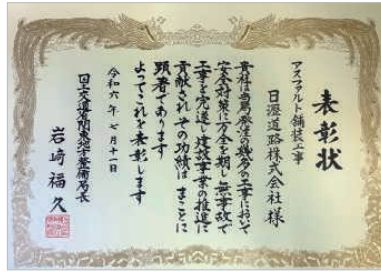 表彰状
アスファルト舗装工事
日瀝道路株式会社様
貴社は当局発注の幾多の工事において
安全対策に万全を期し無事故で
工事を完遂し建設事業の推進に
貢献されその功績はまことに
顕著であります
よってこれを表彰します
令和六年七月十一日
国土交通省関東地方整備局長
岩﨑福久